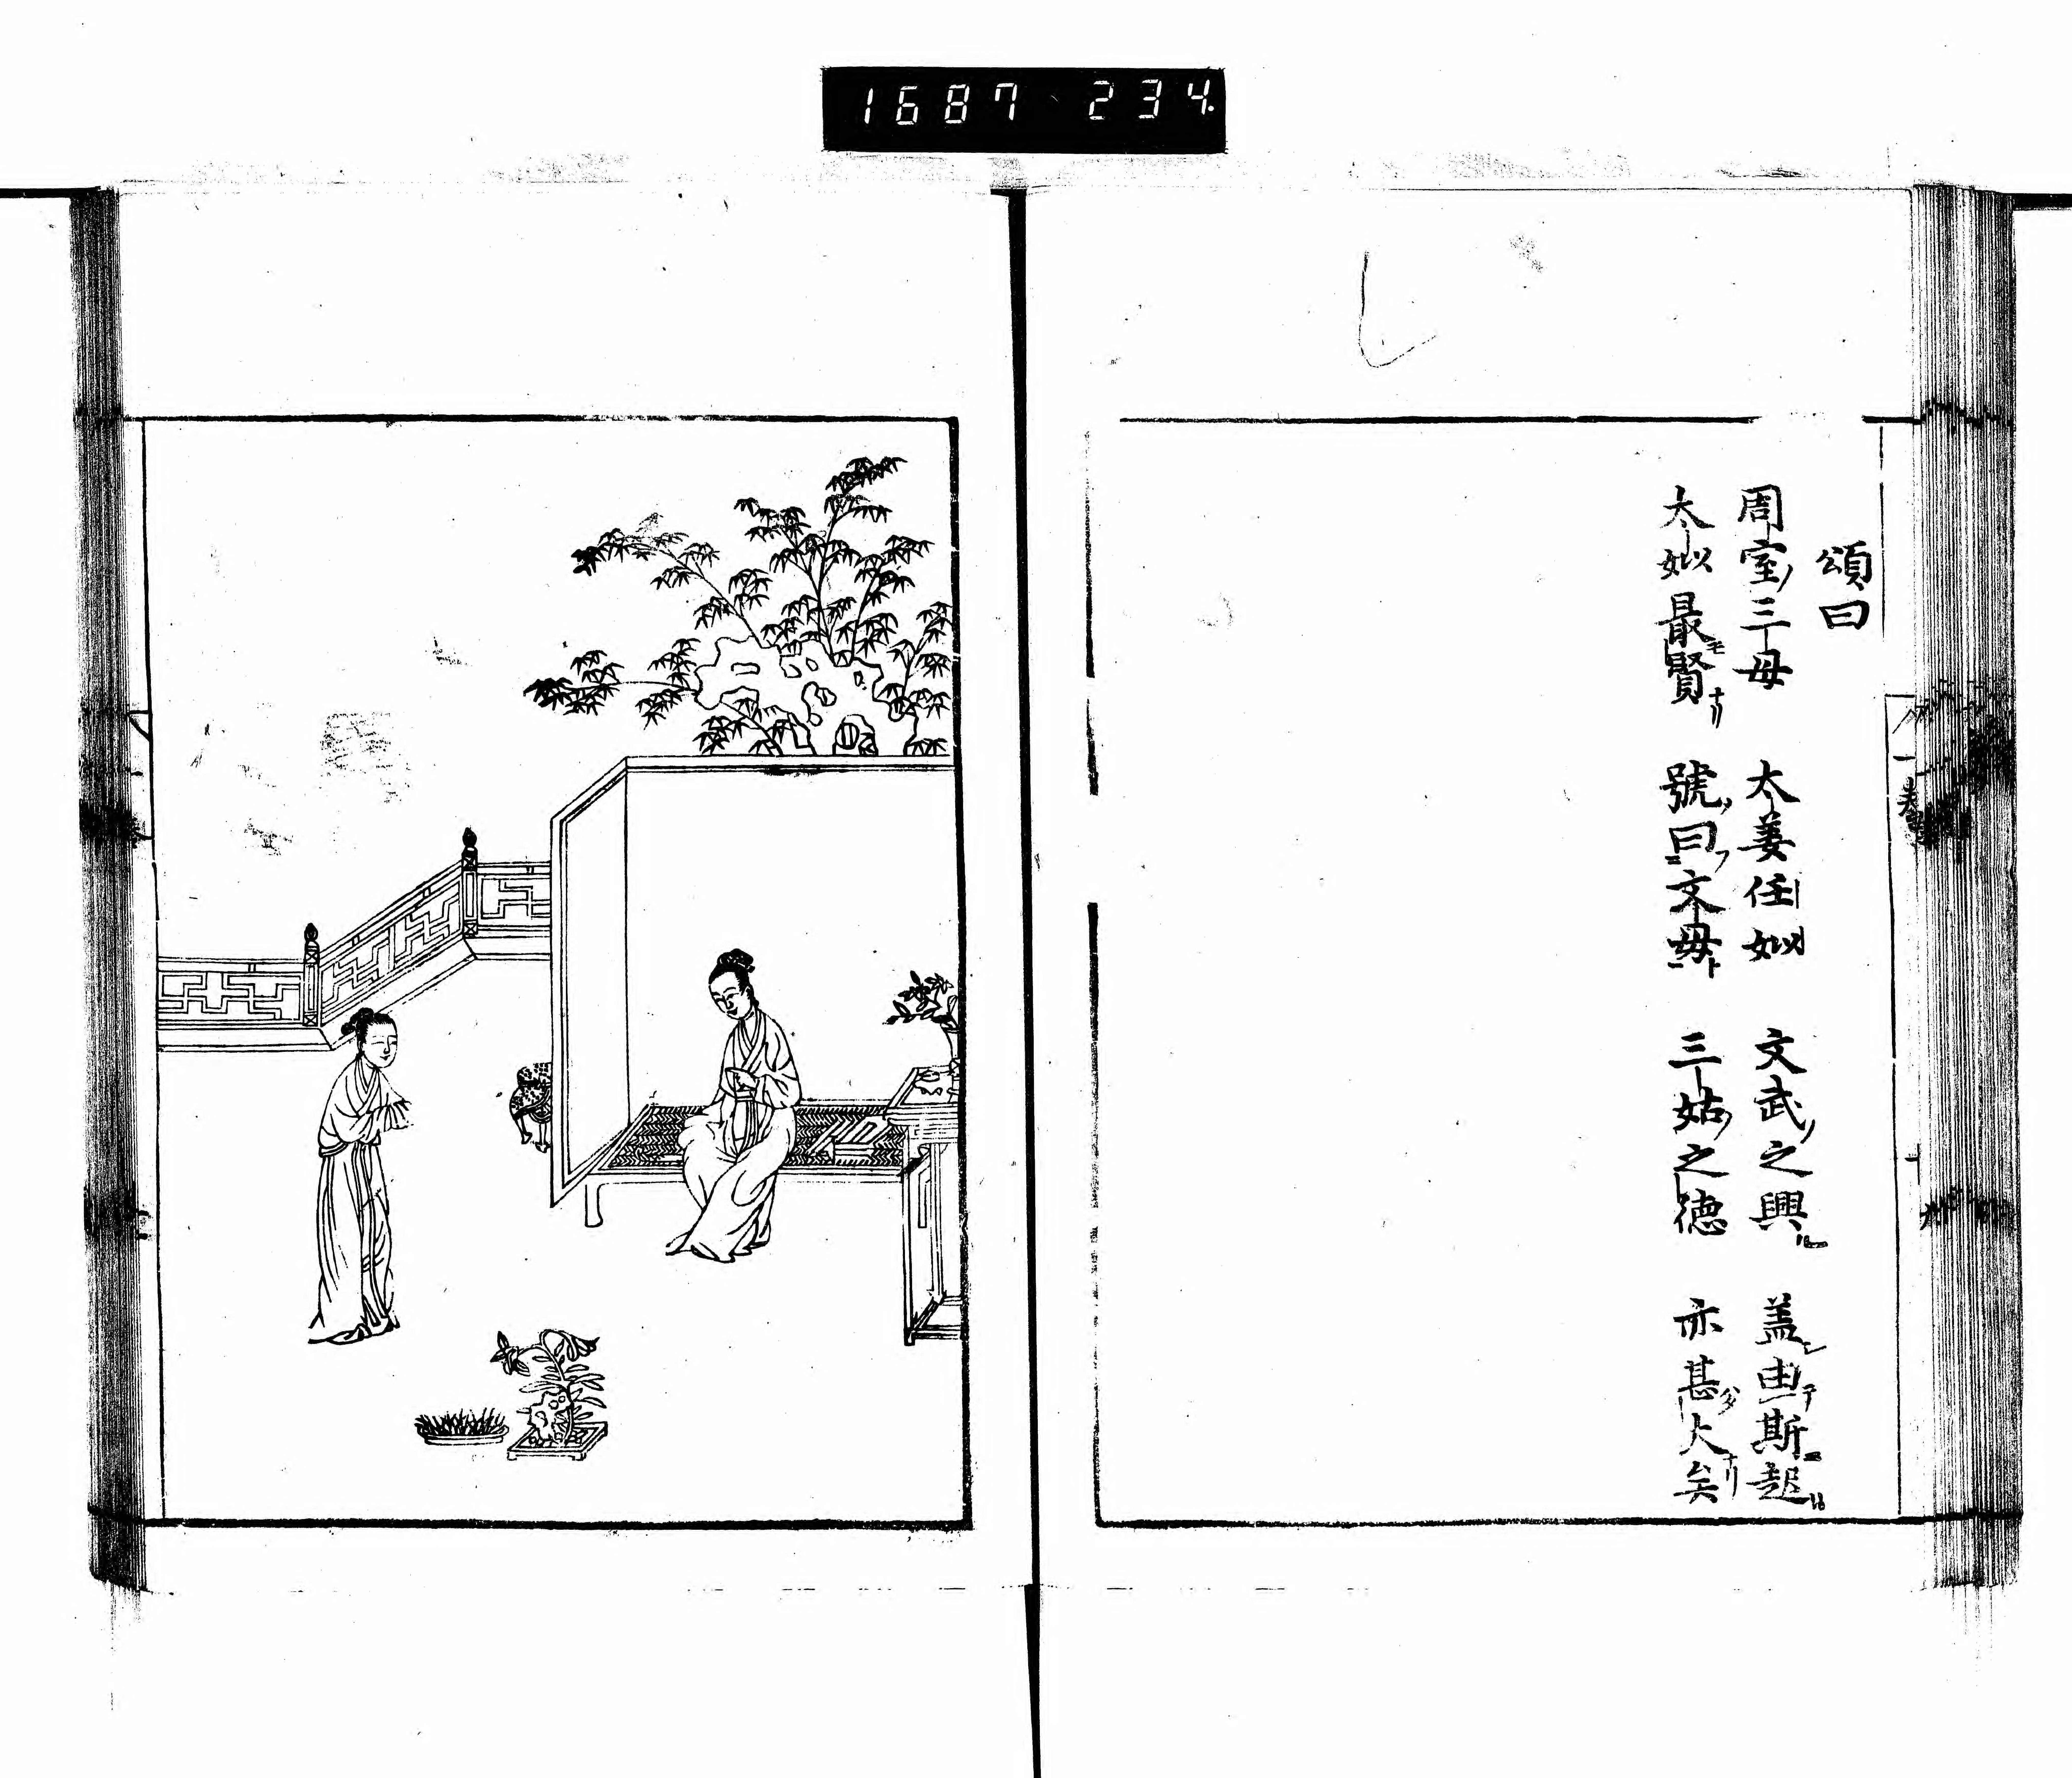 1687 234
頌曰
周室三母 太姜任姒 文武之興 盖由斯起
太姒最賢 號曰文母 三姑之德 亦甚大矣